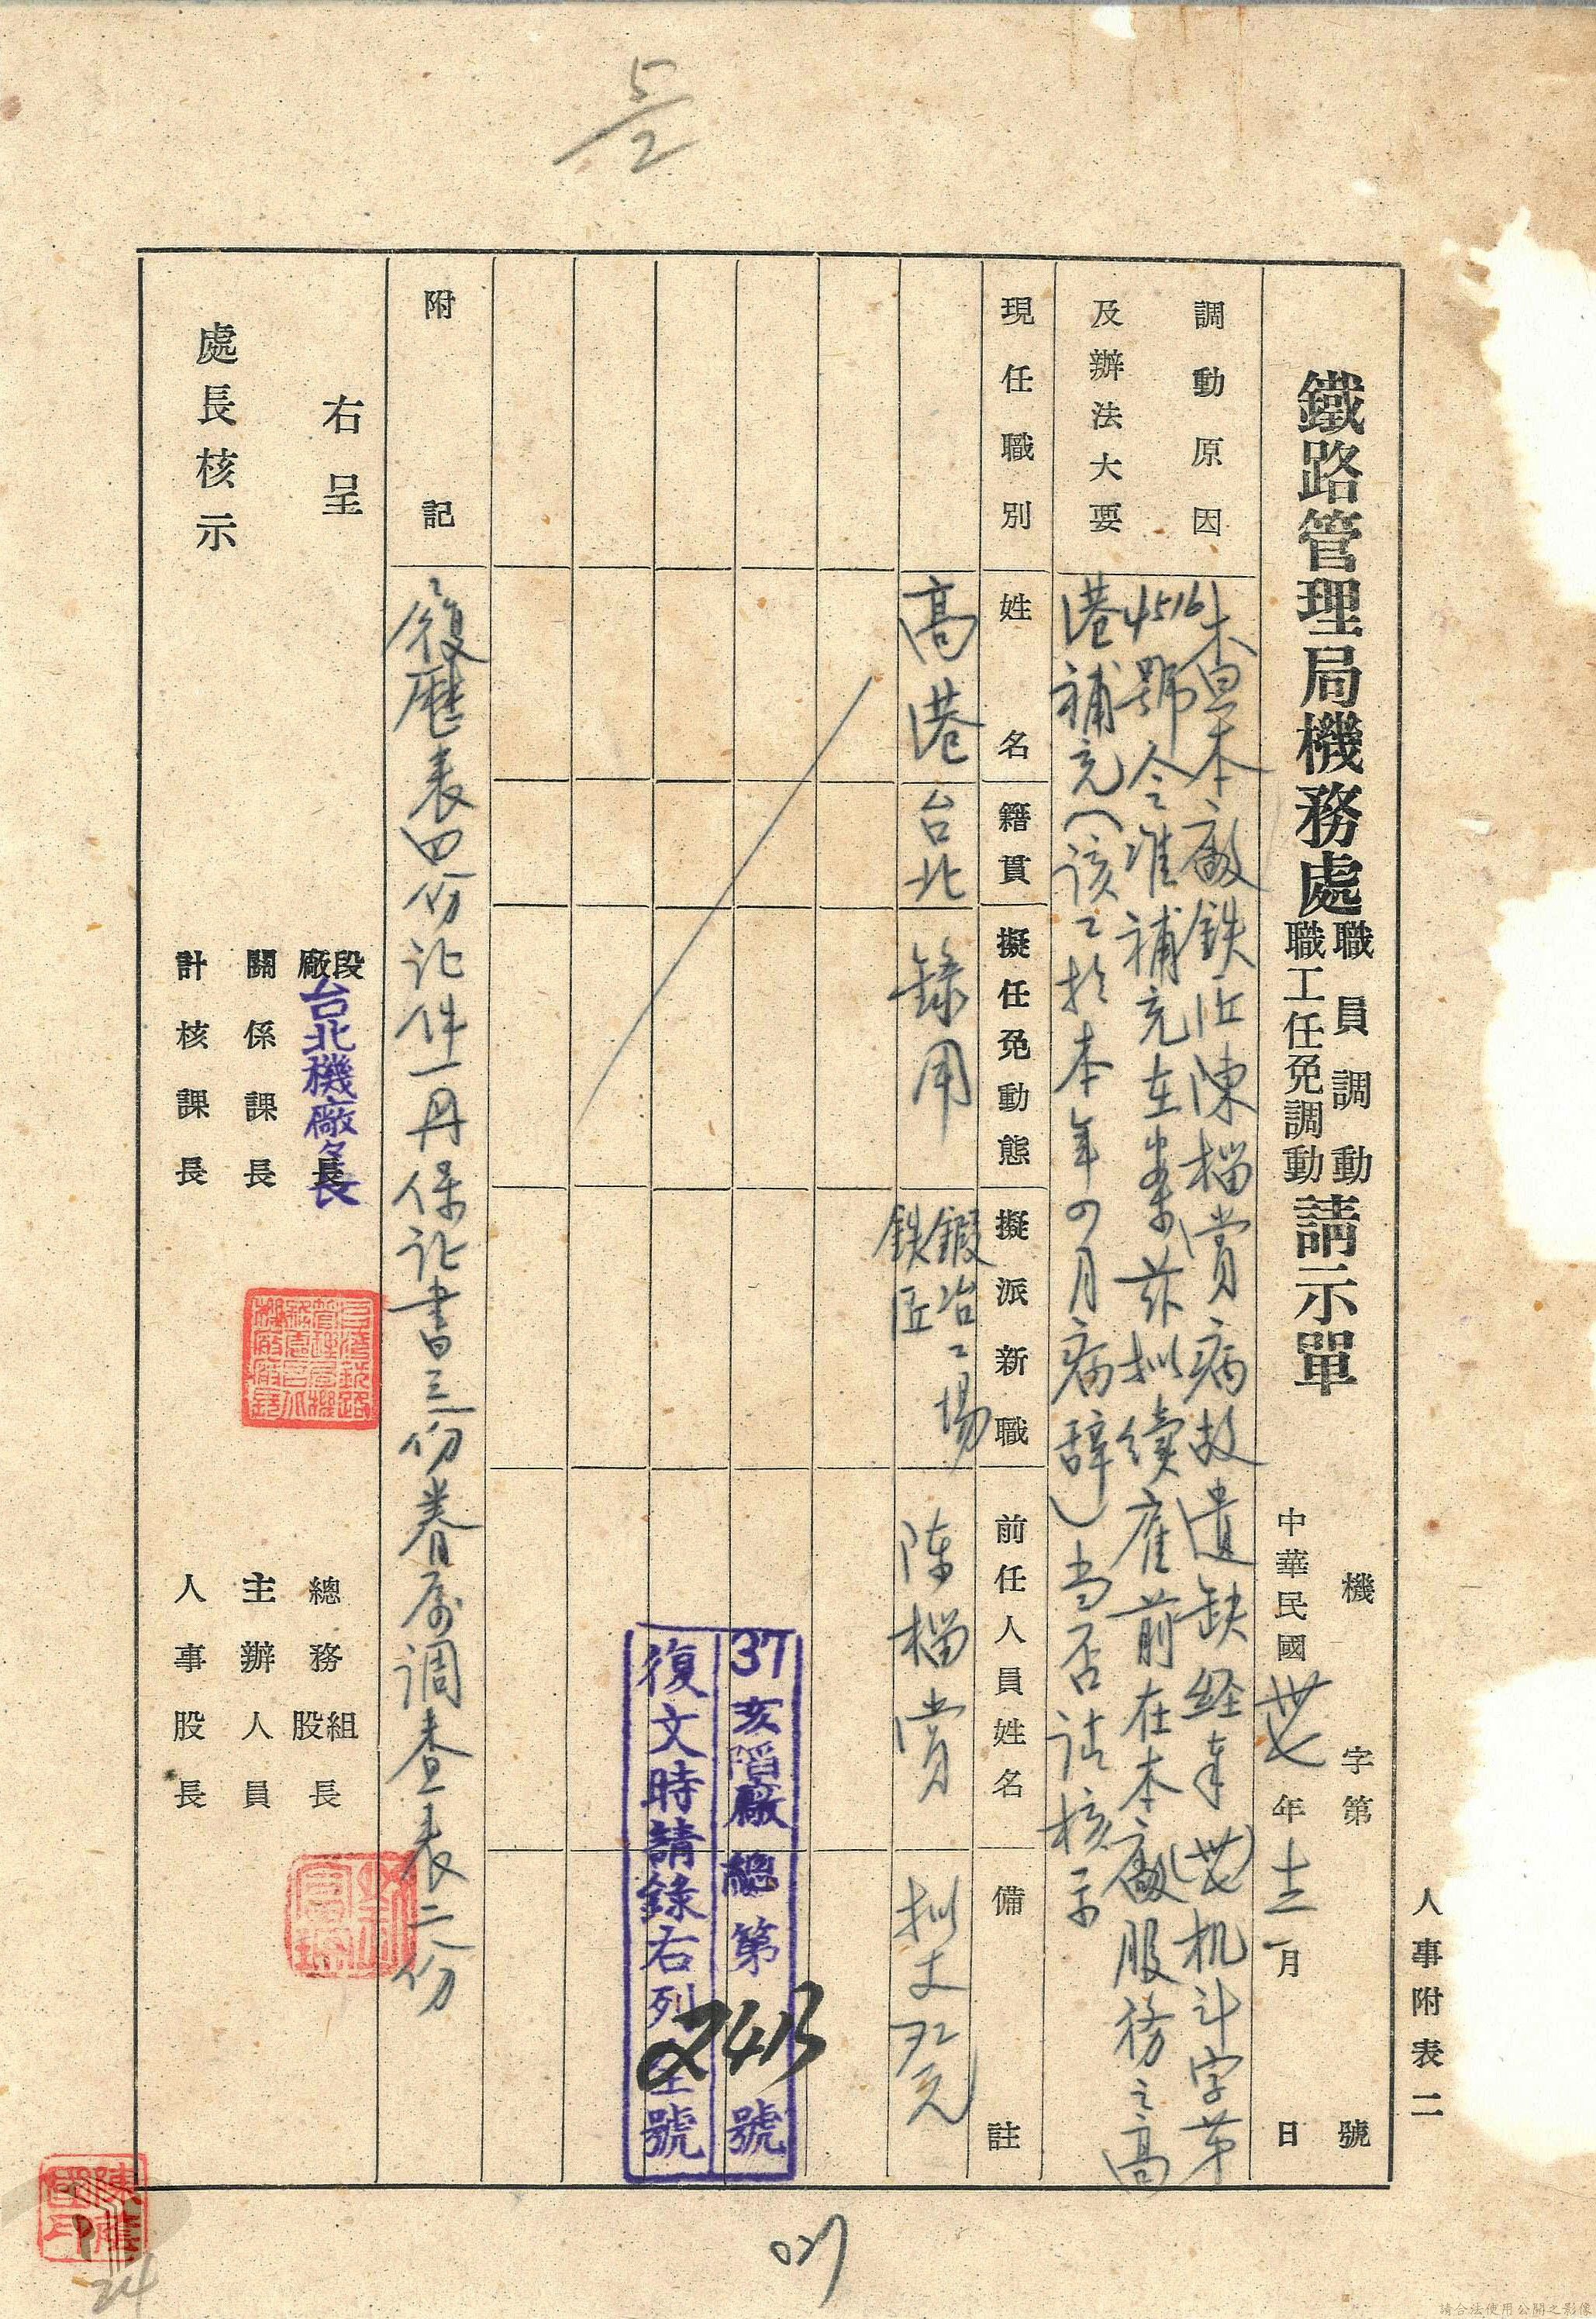 5/2
人事附表二
機 字第 號
鐵路管理局機務處職員調動職工任免調動請示單
中華民國 卅七 年 十二 月 日
調動原因及辦法大要
查本廠鉄匠陳榴賞病故遺缺経奉(卅七)机斗字第
4516號令准補充在案茲拟續雇前在本廠服務之高
港補充(該工於本年四月病辞)当否請核示
現任職別 姓名 籍貫 擬任免動態 擬派新職 前任人員姓名 備註
高港 台北 錄用 鍛冶工場鉄匠 陳榴賞 拟支 元
37亥 廠總第2413號
復文時請錄右列全號
附記
履歷表四份証件一冊保証書三份眷屬調查表二份
右呈
段廠長 台北機廠々長
總務組股長
關係課長
主辦人員
處長核示
計核課長
人事股長
027
24
請合法使用公開之影像